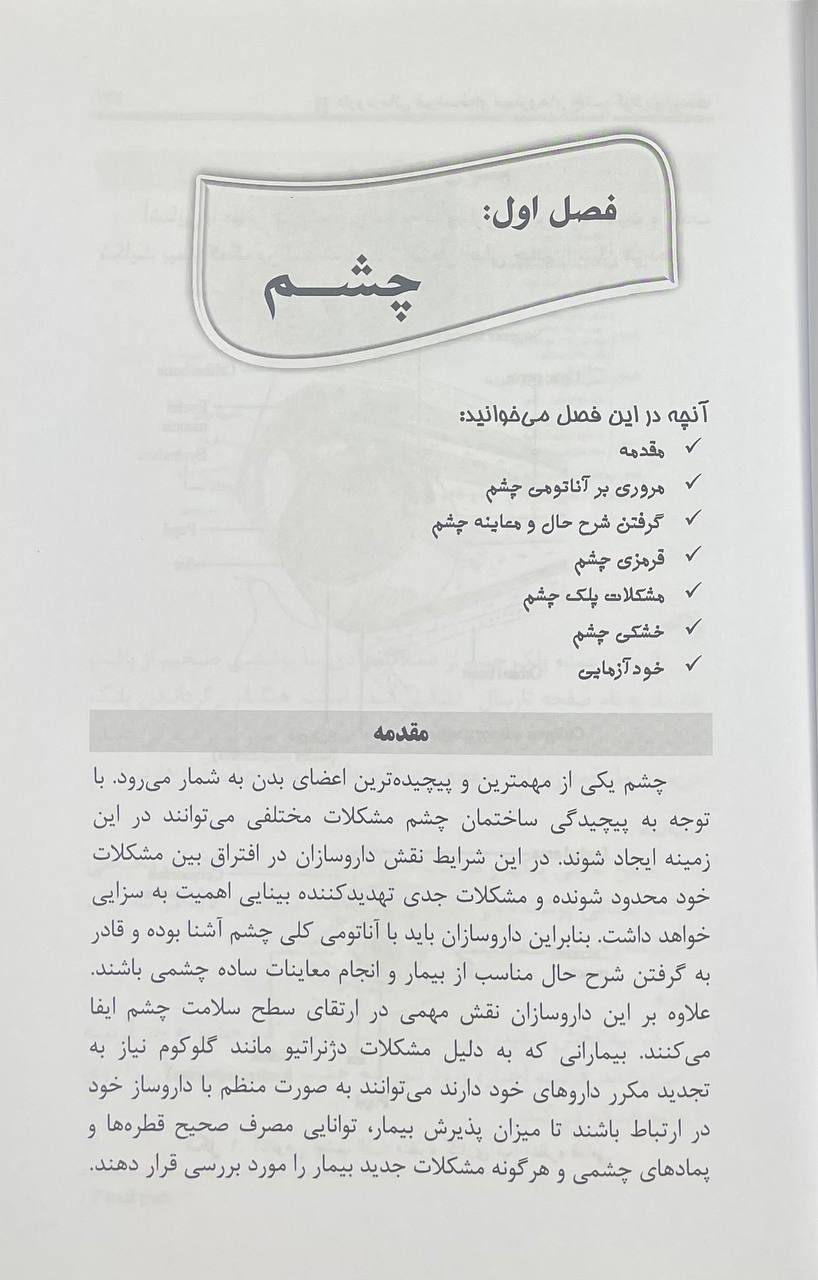 فصل اول:
چشم
آنچه در این فصل می‌خوانید:
✓ مقدمه
✓ مروری بر آناتومی چشم
✓ گرفتن شرح حال و معاینه چشم
✓ قرمزی چشم
✓ مشکلات پلک چشم
✓ خشکی چشم
✓ خودآزمایی
مقدمه
چشم یکی از مهمترین و پیچیده‌ترین اعضای بدن به شمار می‌رود. با
توجه به پیچیدگی ساختمان چشم مشکلات مختلفی می‌توانند در این
زمینه ایجاد شوند. در این شرایط نقش داروسازان در افتراق بین مشکلات
خود محدود شونده و مشکلات جدی تهدیدکننده بینایی اهمیت به سزایی
خواهد داشت. بنابراین داروسازان باید با آناتومی کلی چشم آشنا بوده و قادر
به گرفتن شرح حال مناسب از بیمار و انجام معاینات ساده چشمی باشند.
علاوه بر این داروسازان نقش مهمی در ارتقای سطح سلامت چشم ایفا
می‌کنند. بیمارانی که به دلیل مشکلات دژنراتیو مانند گلوکوم نیاز به
تجدید مکرر داروهای خود دارند می‌توانند به صورت منظم با داروساز خود
در ارتباط باشند تا میزان پذیرش بیمار، توانایی مصرف صحیح قطره‌ها و
پمادهای چشمی و هرگونه مشکلات جدید بیمار را مورد بررسی قرار دهند.